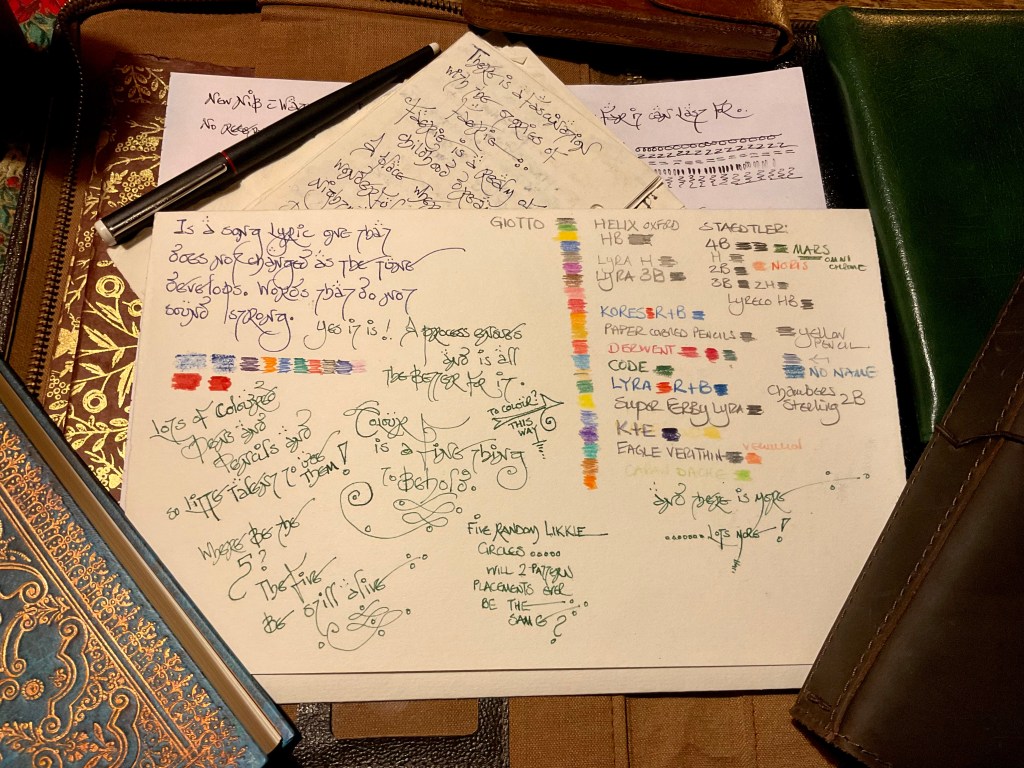 New Nib =
No
For it can last for...
There is a fascination
with the fairies of
Faerie
Faerie is a realm
of childhood dream
A place where
wonder
Is a song lyric one that
does not changed as the tune
develops. Words that do not
sound strong.
Yes it is! A process ensues
and is all
the better for it.
Lots of coloured
pens and
pencils and
so little talent to use
them!
Where be the
5?
The five
be still alive
Colour
is a fine thing
to behold.
To colour?
This
way
Five random likkle
circles ooooo
will 2 pattern
placements ever
be the
same?
GIOTTO
HELIX OXFORD
HB
LYRA H
LYRA 3B
KORES R+B
PAPER COVERED PENCILS
DERWENT
CODE
LYRA R+B
SUPER FERBY LYRA
K+E
EAGLE VERITHIN
VERMILLION
CARAN DACHE
STAEDTLER:
4B
MARS
OMNI
CHROME
H
2B
NORIS
3B
2H
LYRECO HB
YELLOW
PENCIL
NO NAME
Chambers 2B
Sterling
and there is more
....... Lots more!